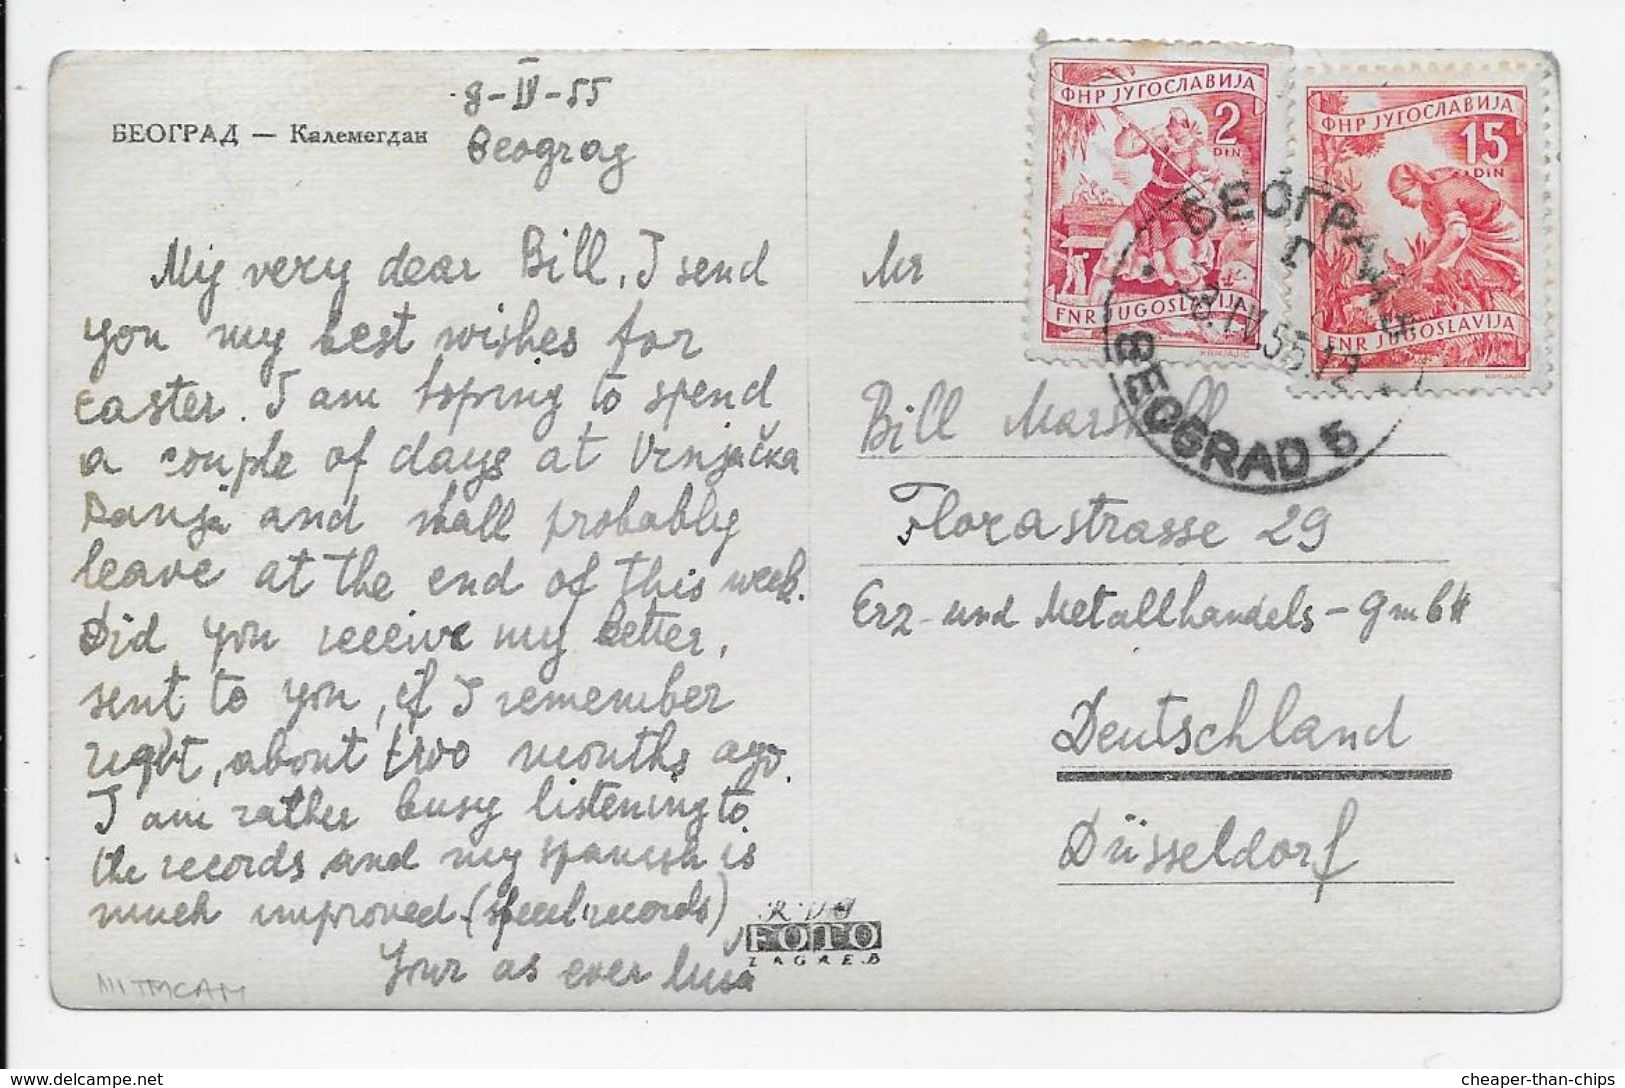 8-IV-55
БЕОГРАД — Калемегдан
Beograd
My very dear Bill, I send
you my best wishes for
easter. I am hoping to spend
a couple of days at Vrnjačka
Banja and shall probably
leave at the end of this week.
Did you receive my letter,
sent to you, if I remember
right, about two months ago.
I am rather busy listening to
the records and my spanish is
much improved. (speed records)
Your as ever
FOTO
ZAGREB
ФНР ЈУГОСЛАВИЈА
2
DIN
FNR JUGOSLAVIJA
KRNJAJIĆ
ФНР ЈУГОСЛАВИЈА
15
DIN
FNR JUGOSLAVIJA
KRNJAJIĆ
БЕОГРАД
BEOGRAD 5
Mr
Bill Marshall
Florastrasse 29
Erz- und Metallhandels-GmbH
Deutschland
Düsseldorf
cheaper-than-chips
www.delcampe.net